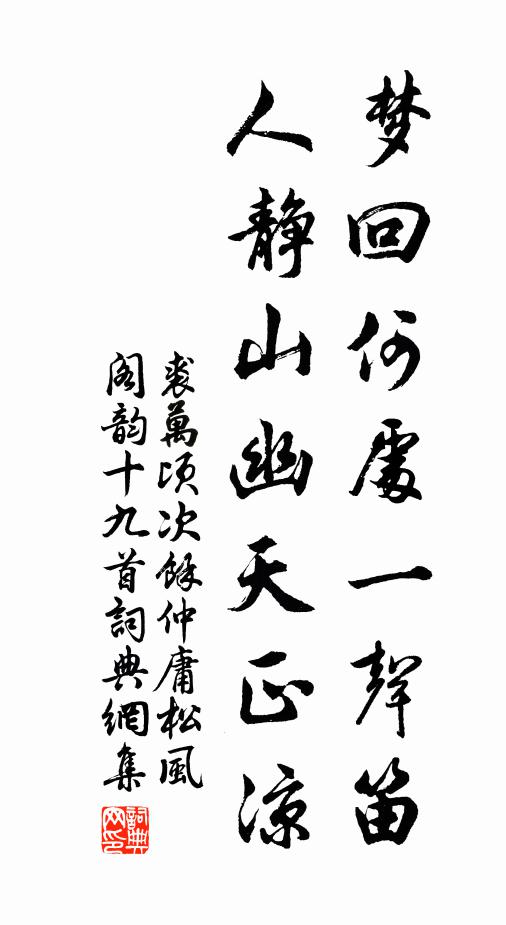 梦回何處一聲笛
人静山幽天正涼
裘萬頃次餘仲庸松風
阁韵十九首詞典網集
詞典网印